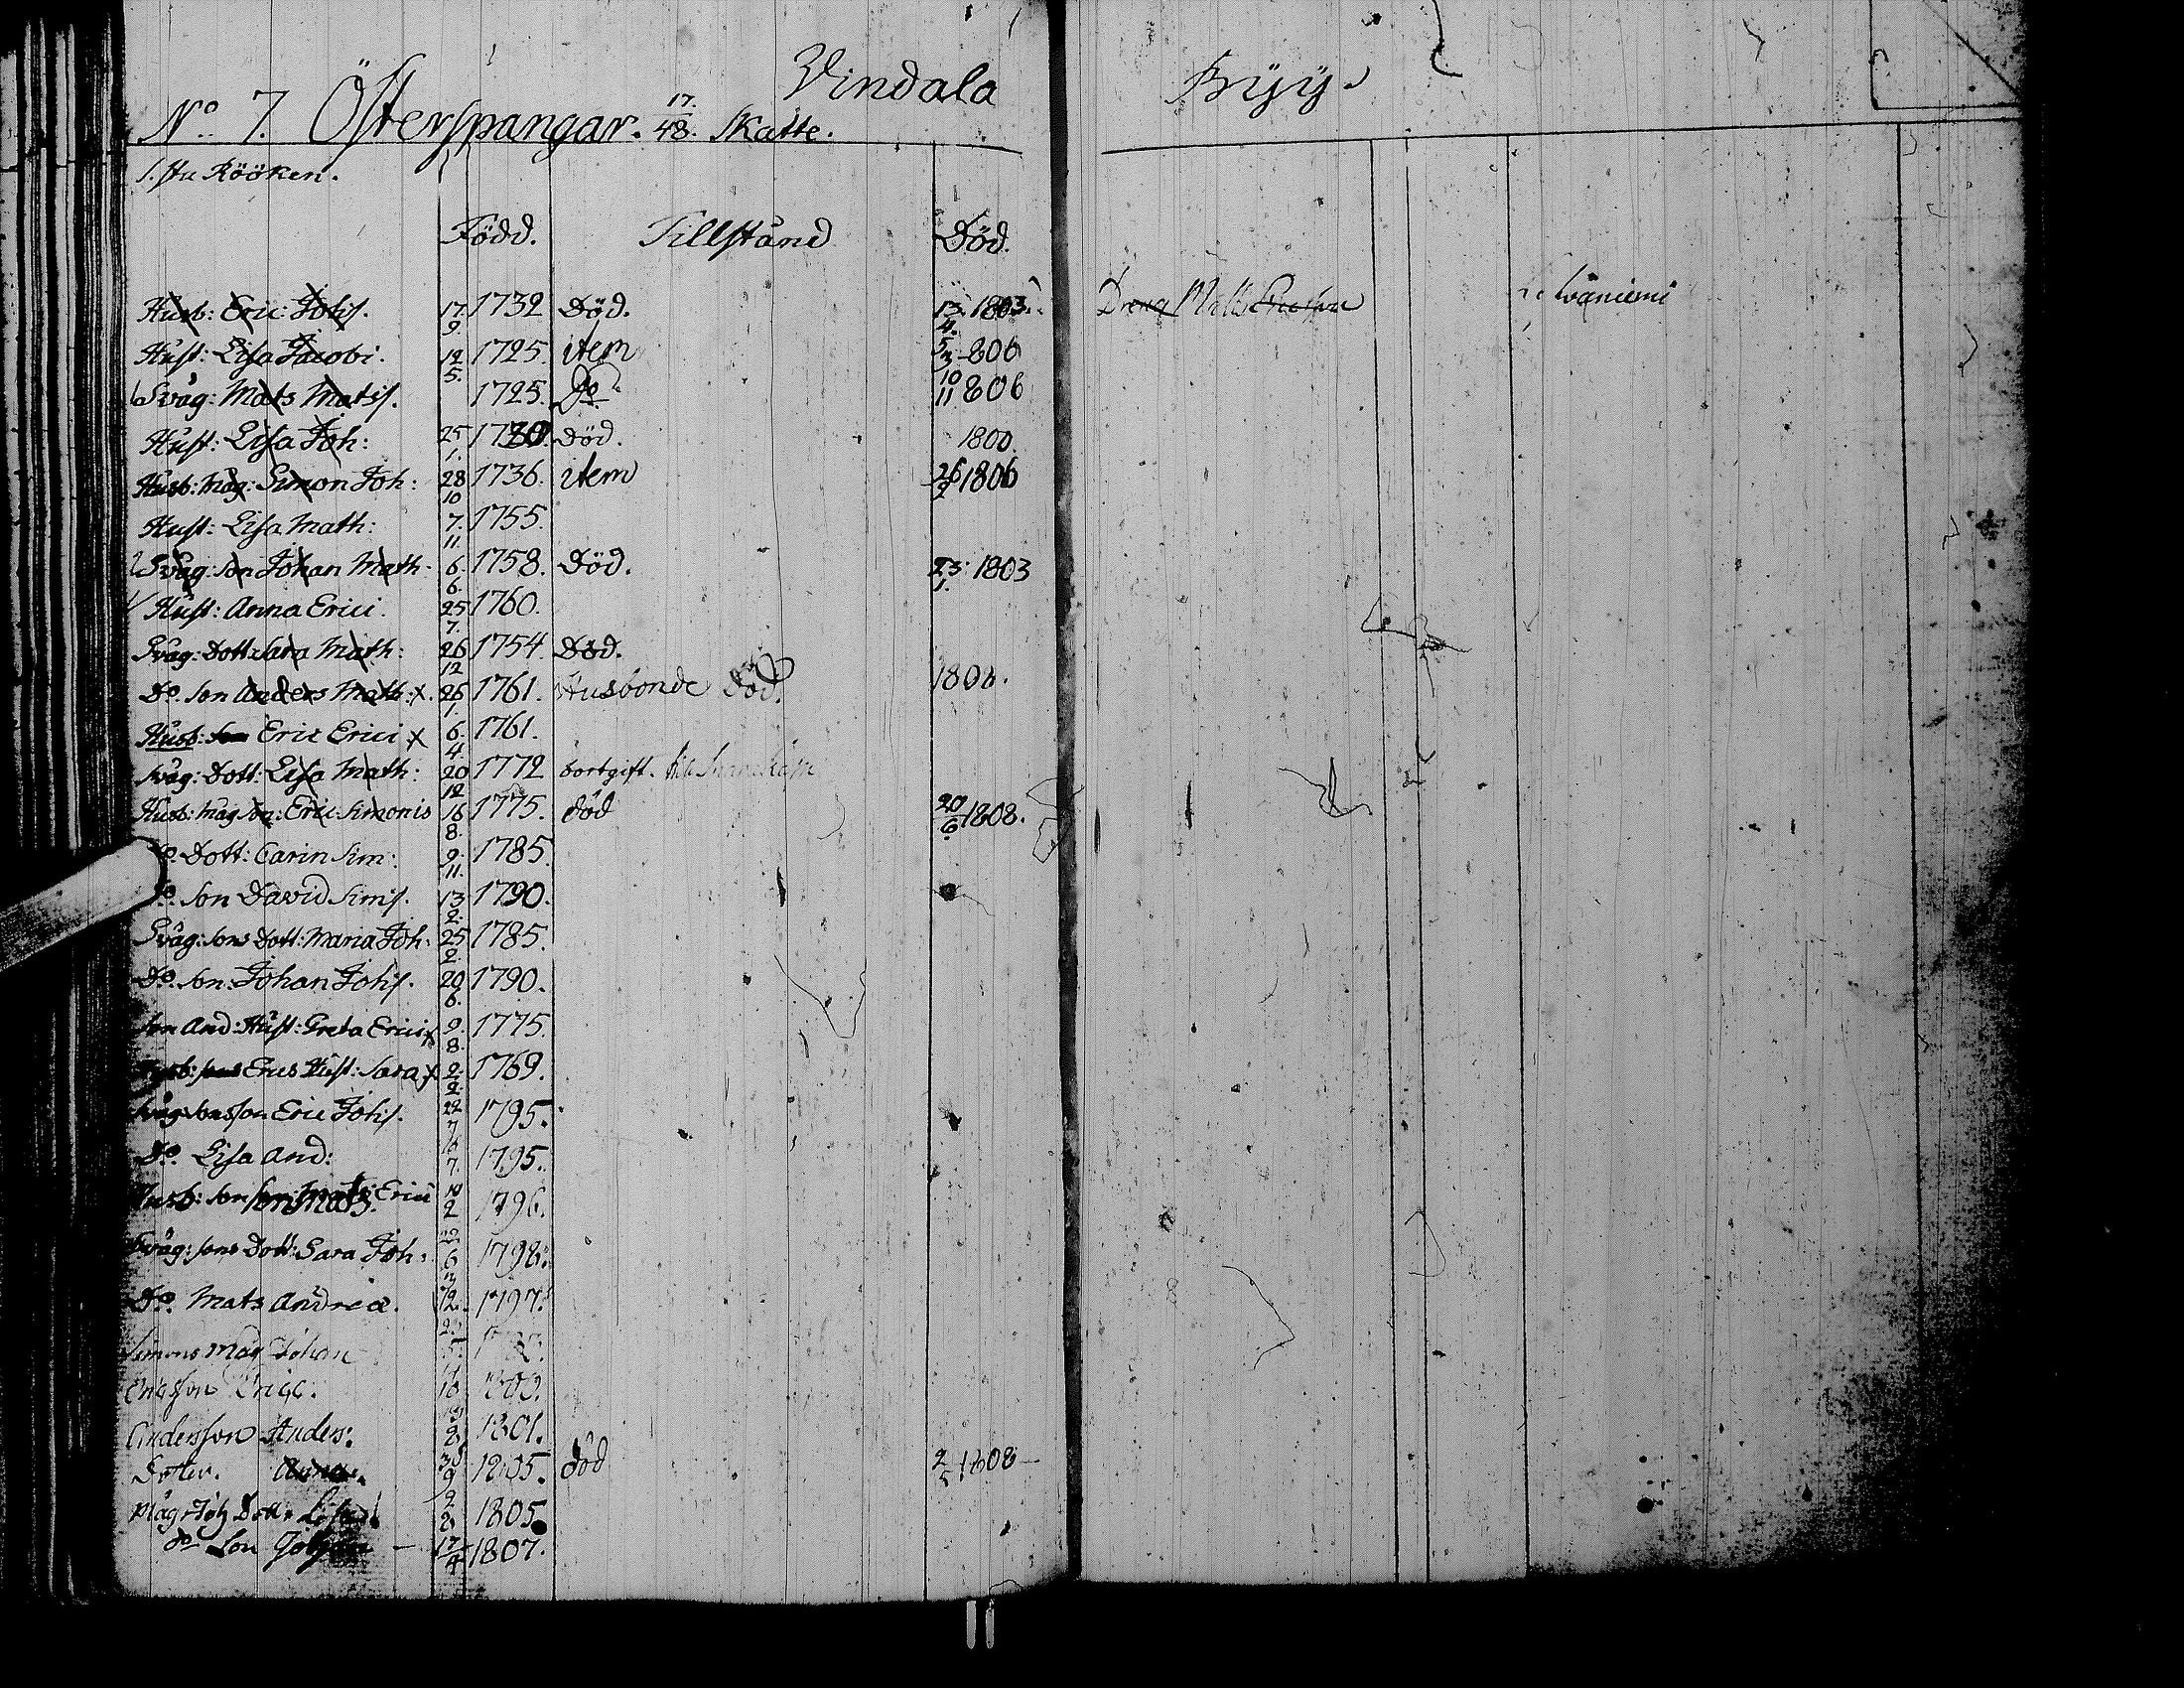 Vindala Byy.
No. 7. Österspangar. 17/48. Skatte.
1. sta Rööken.
Född. Tillstånd Död.
Husb: Eric Johs. 17/9. 1732 Död. 13/4. 1803. Dreng Matts Ericsson
Hust: Lisa Jacobi. 12/5. 1725. item 5/3 806
Svåg: Mats Mats. 1725. Do. 10/11 806
Hust: Lisa Joh: 25/1. 1730. Död. 1800.
Husb: Måg: Simon Joh: 28/10 1736. item 26/2 1806
Hust: Lisa Math: 7/11. 1755.
Svåg: Son Johan Math: 6/6. 1758. Död. 23/1. 1803
Hust: Anna Erici. 25/7. 1760.
Svåg: Dott: Sara Math: 26/12 1754. Död.
Do. Son Anders Math: x. 26/1. 1761. Husbonde Död. 1808.
Husb: Son Eric Erici x 6/4. 1761.
Svåg: Dott: Lisa Math: 20/12 1772 bortgift. till
Husb: måg Son: Eric Simonis 16/8. 1775. död 20/6 1808.
Do. Dott: Carin Sim: 9/11. 1785.
Do. Son David Sims. 13/2. 1790.
Svåg: Sons Dott: Maria Joh: 25/2. 1785.
Do. Son: Johan Johs. 20/6. 1790.
Son And: Hust: Greta Erici x 9/8. 1775.
Husb: sons Erics Hust: Sara x 2/2. 1769.
Svåg sons son Eric Johs. 22/7 1795.
Do. Lisa And: 16/7. 1795.
Husb: Son Son Mats Erici 2 1796.
Svåg: sons Dott: Sara Joh: 22/6 1798.
Do. Mats Andreæ. 12. 1797.
Simons Måg Johan
Ericsson Eric. 10
Andersson Anders. 8 1801.
Dotter. Anna. 30/9 1805. död 2/5 1808
Måg Joh Dott. Lisa 9/8 1805
do Son Johan – 17/4 1807.